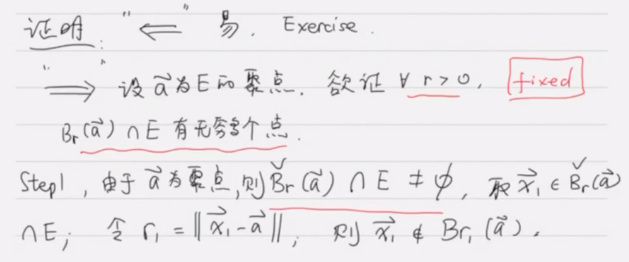 证明: "⟸" 易. Exercise.
"⟹" 设 a⃗ 为 E 的聚点. 欲证 ∀ r>0, fixed
Br(a⃗) ∩ E 有无穷多个点.
Step1, 由于 a⃗ 为聚点, 则 B̌r(a⃗) ∩ E ≠ ∅, 取 x⃗₁ ∈ B̌r(a⃗)
∩ E; 令 r₁ = ‖x⃗₁ - a⃗‖, 则 x⃗₁ ∉ Br₁(a⃗).